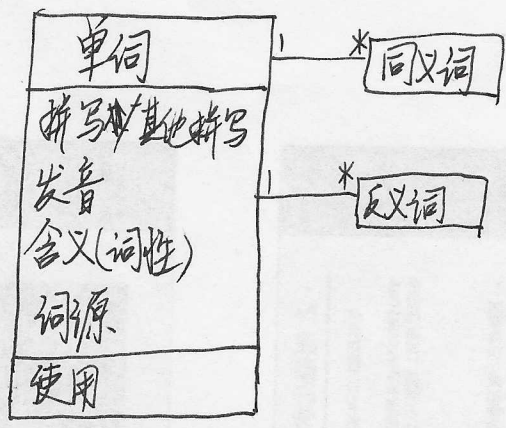 单词
拼写/其他拼写
发音
含义(词性)
词源
使用
1 * 同义词
1 * 反义词